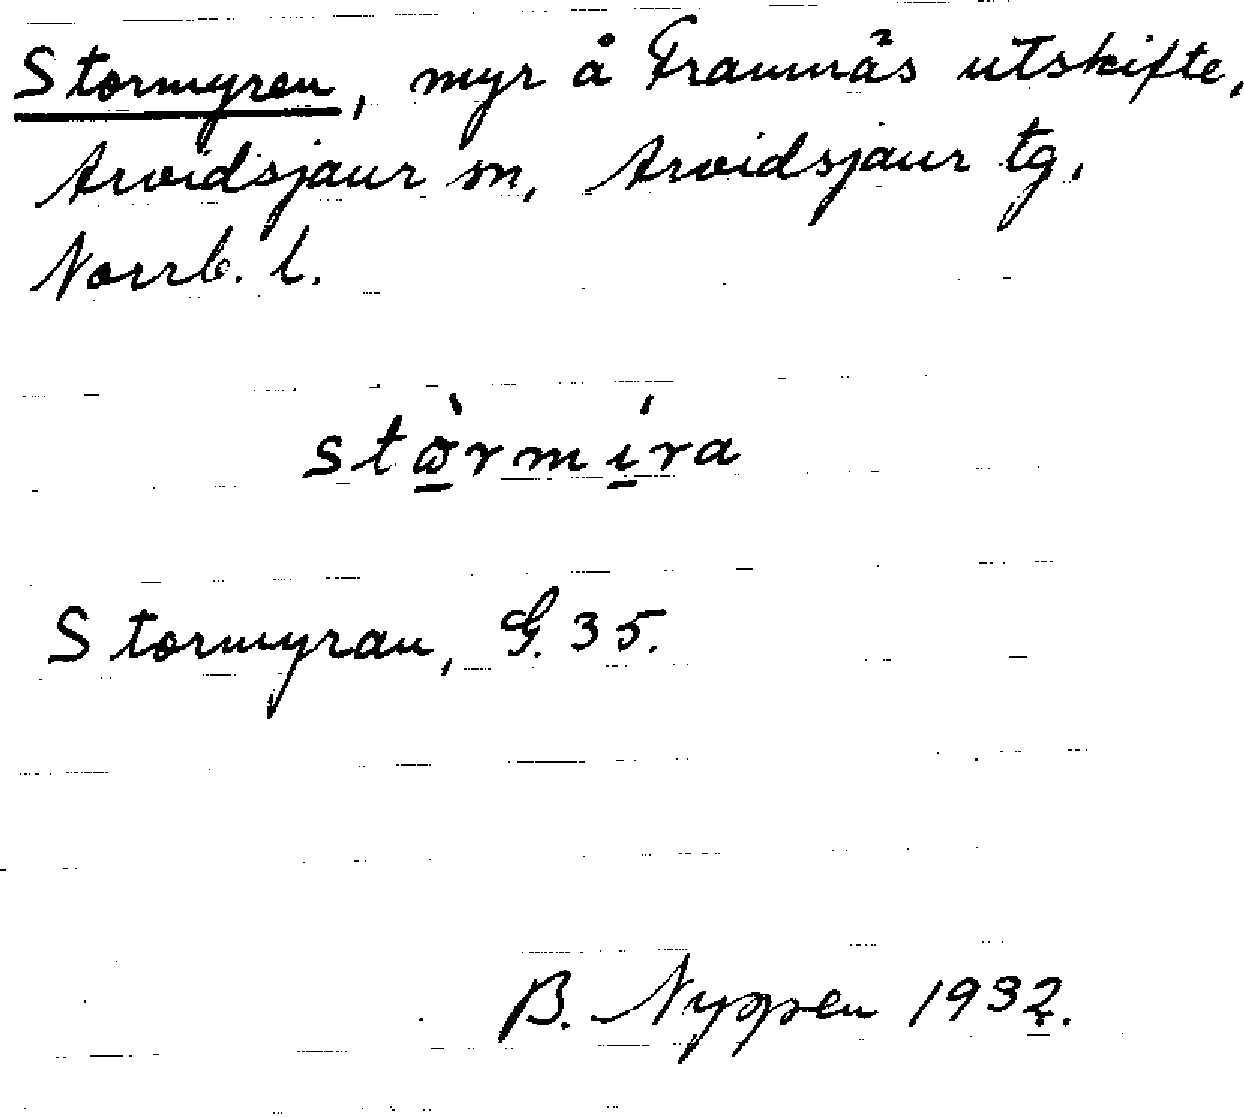 Stormyren, myr å Framnäs utskifte,
Arvidsjaur sn, Arvidsjaur tg,
Norrb. l.
stὼrmíra
Stormyran, G. 35.
B. Nyppen 1932.